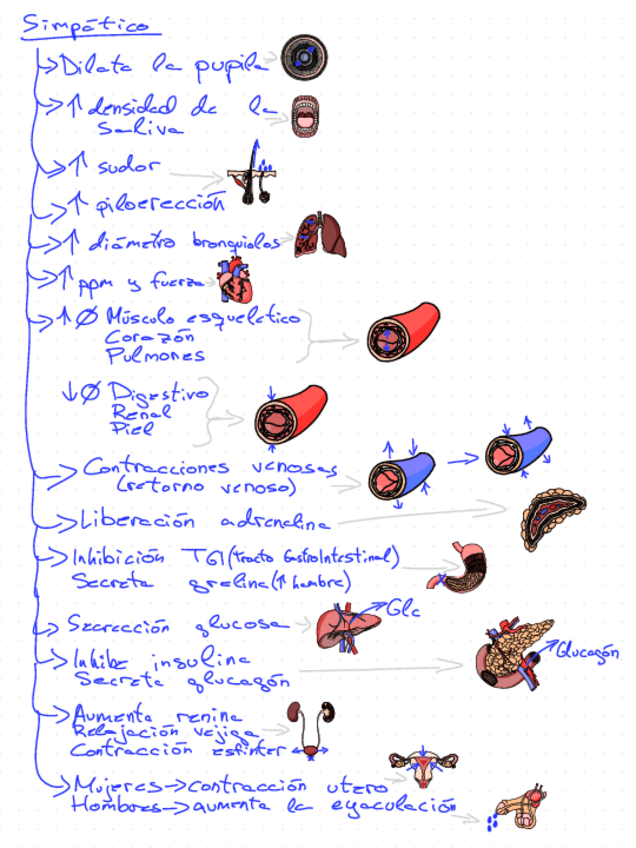 Simpático
Dilata la pupila
↑ densidad de la
saliva
↑ sudor
↑ piloerección
↑ diámetro bronquiolos
↑ ppm y fuerza
↑ Ø Músculo esquelético
Corazón
Pulmones
↓ Ø Digestivo
Renal
Piel
Contracciones venosas
(retorno venoso)
Liberación adrenalina
Inhibición TGI (tracto GastroIntestinal)
Secreta grelina (↑ hambre)
Secreción glucosa
Glc
Inhibe insulina
Secreta glucagón
Glucagón
Aumenta renina
Relajación vejiga
Contracción esfinter
Mujeres → contracción utero
Hombres → aumenta la eyaculación